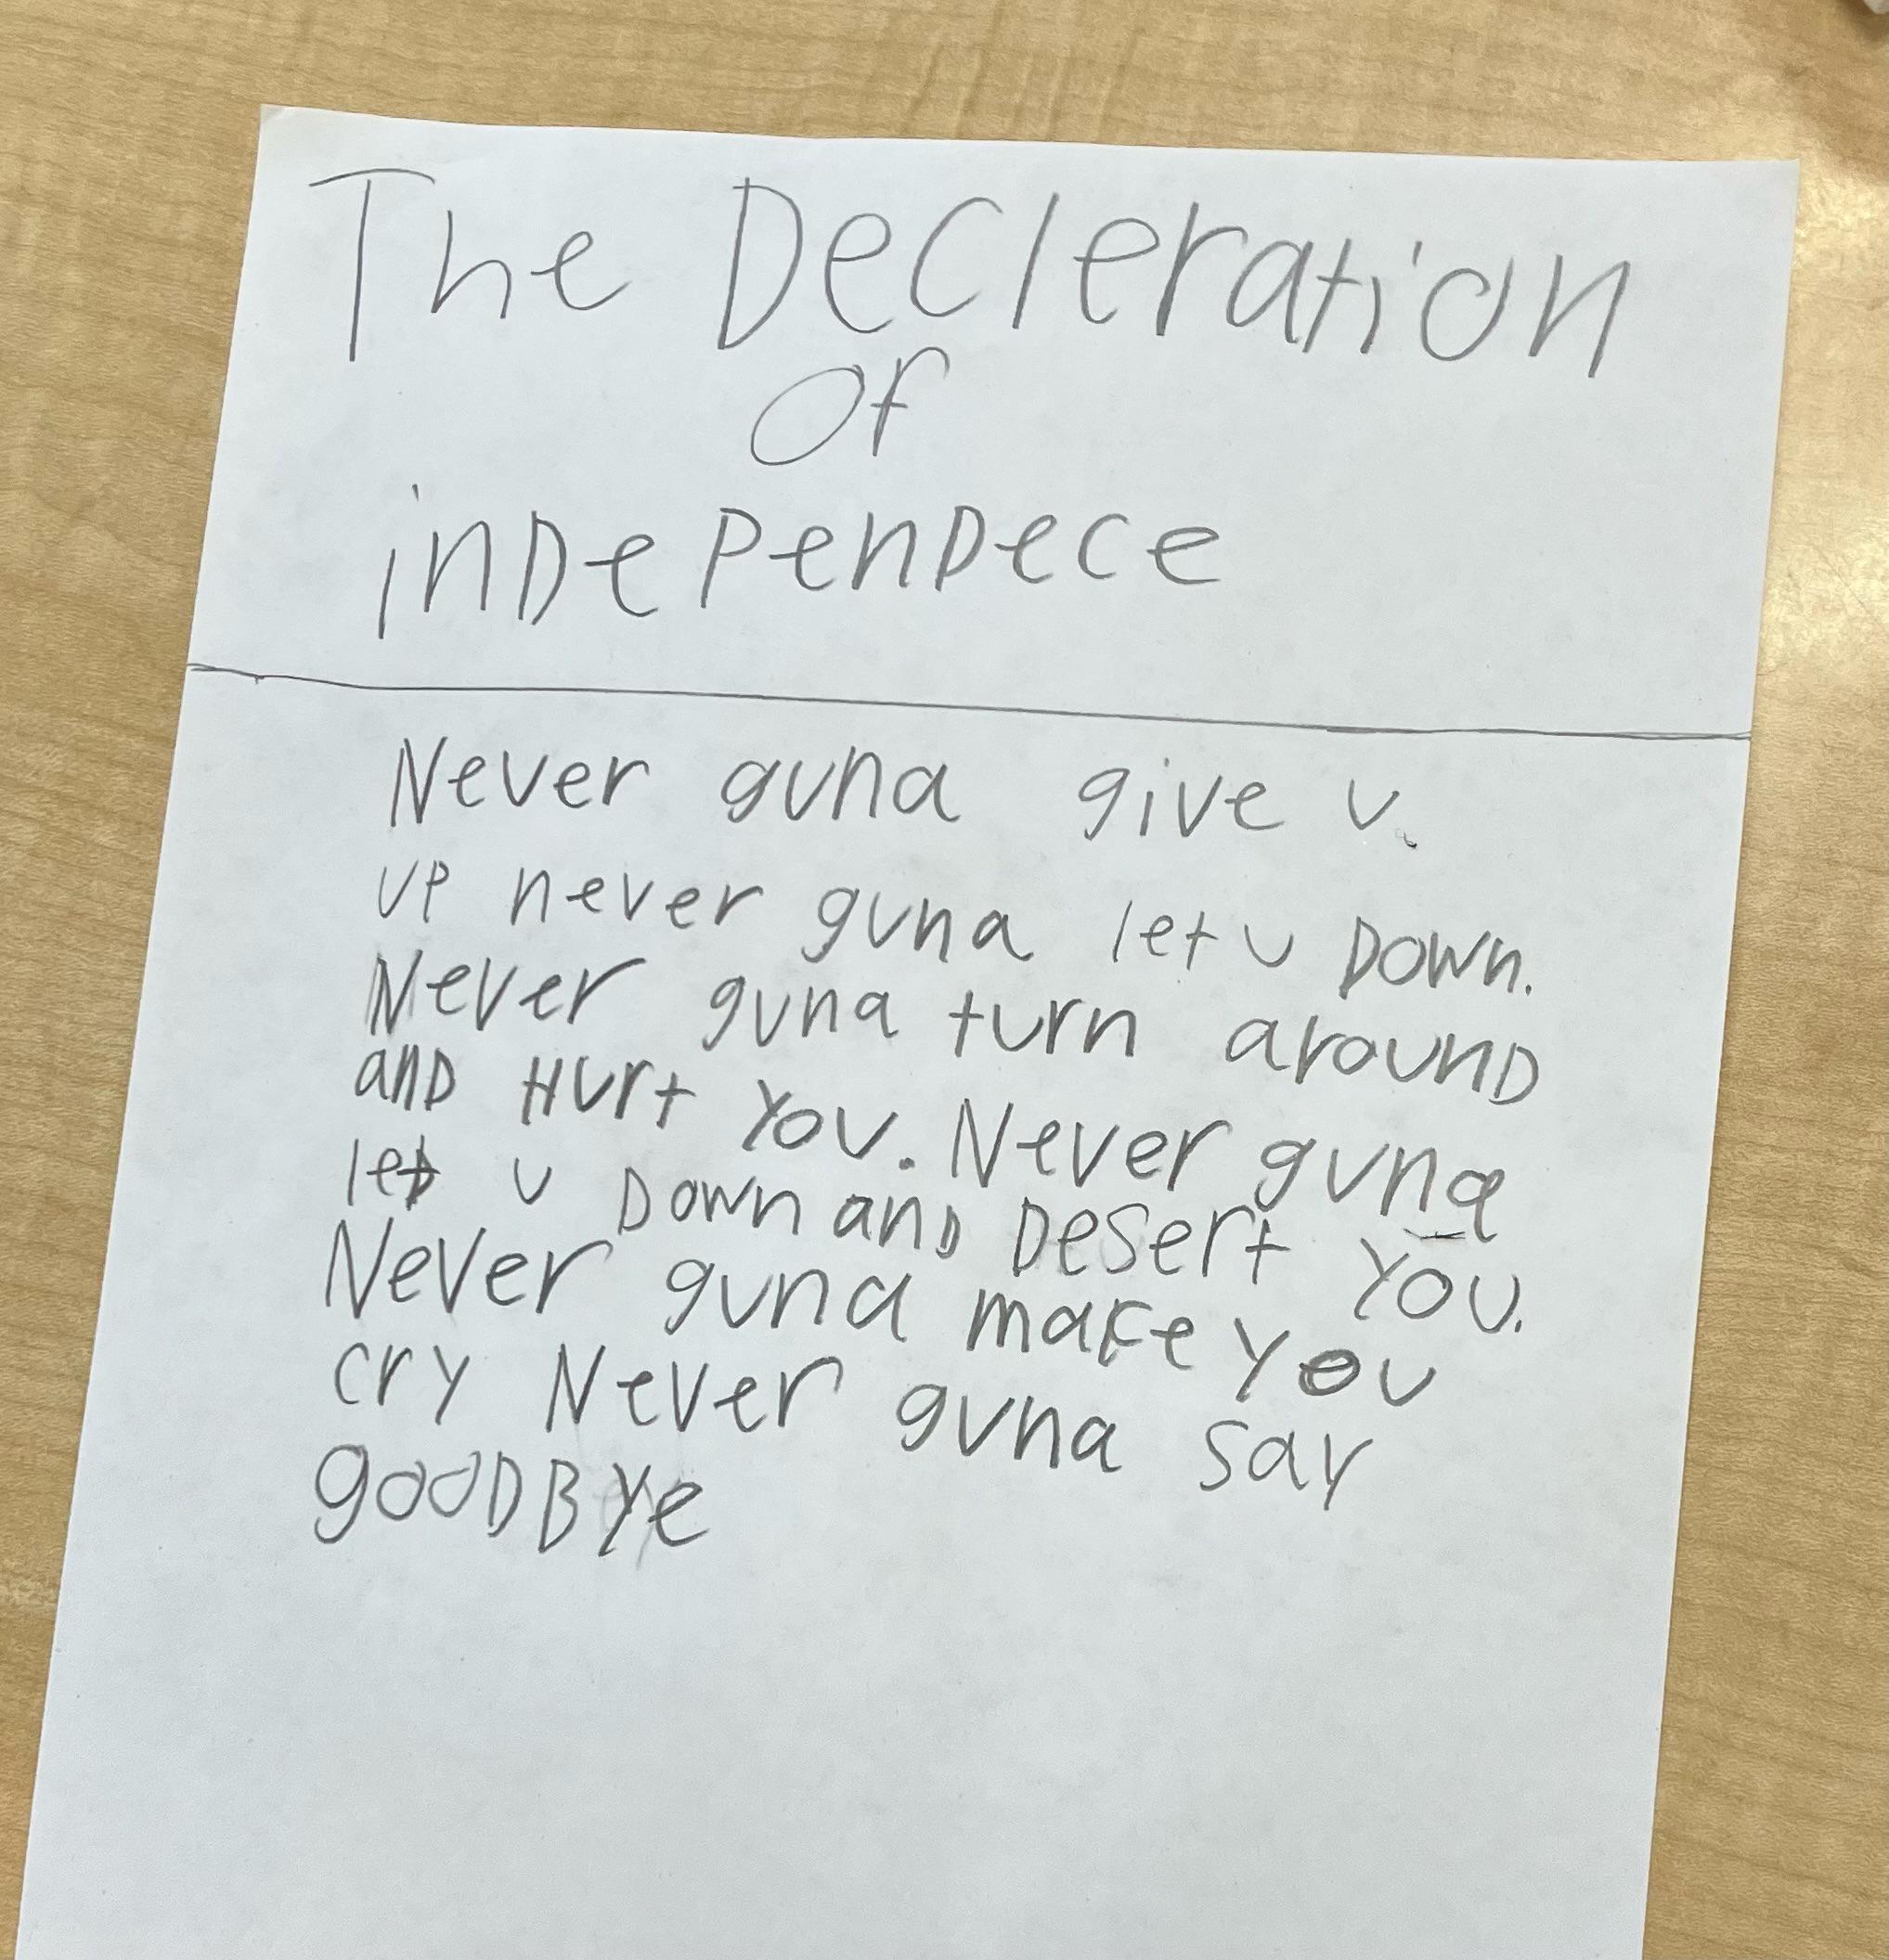 The Decleration
Of
inDepenDece
Never guna give u.
up never guna let u Down.
Never guna turn arounD
anD Hurt You. Never guna
let u Down anD Desert You.
Never guna make you
cry Never guna say
gooDBYe